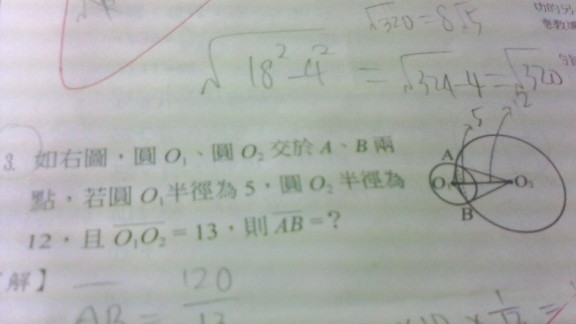 √320 = 8√5
√18² - 4² = √324-4 = √320
5
12
3. 如右圖，圓 O₁、圓 O₂ 交於 A、B 兩
點，若圓 O₁ 半徑為 5，圓 O₂ 半徑為
12，且 O₁O₂ = 13，則 AB = ?
A
O₁
O₂
B
解】
AB = 120